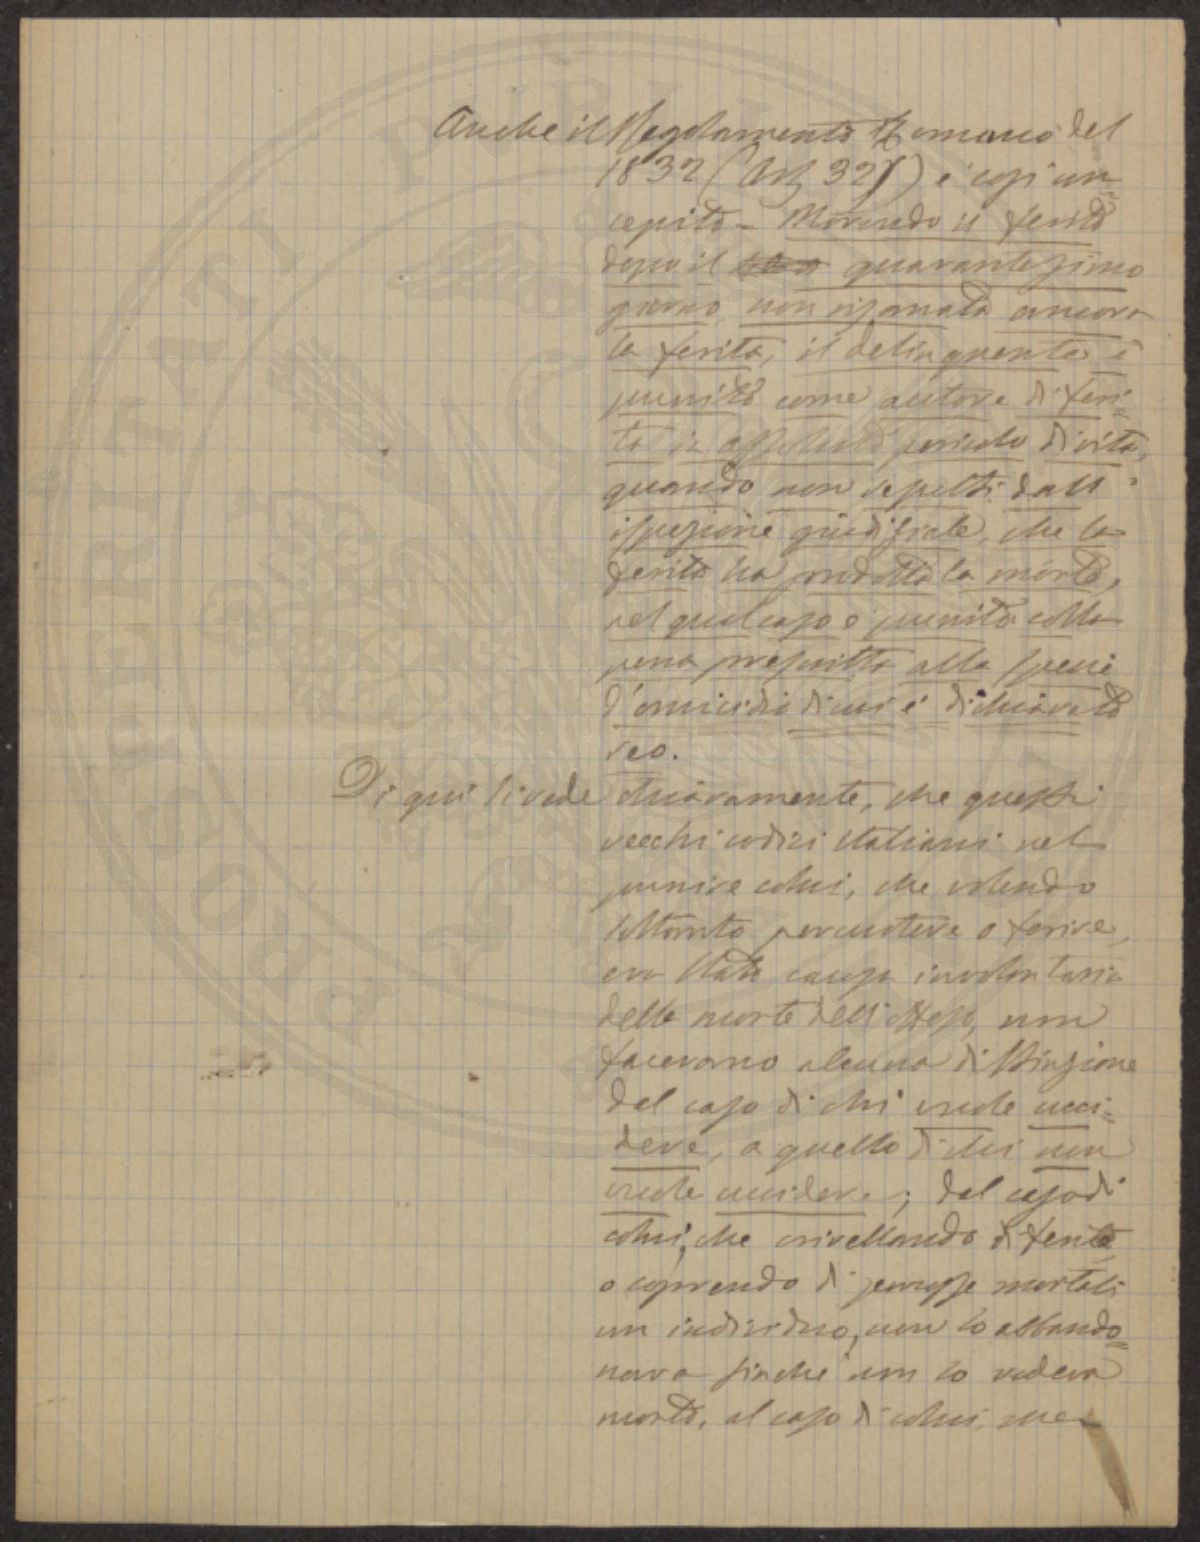 Anche il Regolamento Romano del
1832 (Art 327) è così con=
cepito – Morendo il ferito
dopo il quarantesimo
giorno non risanata ancora
la ferita, il delinquente è
punito come autore di feri=
ta in assoluto pericolo di vita,
quando non risulti dall'
ispezione giudiziale, che la
ferita ha prodotta la morte,
nel qual caso è punito colla
pena prescritta alla specie
d'omicidio di cui è dichiarato
reo.
Di qui si vede chiaramente, che questi
vecchi codici italiani nel
punire colui, che volendo
soltanto percuotere o ferire,
era stato causa involontaria
della morte dell'offeso, non
facevano alcuna distinzione
dal caso di chi vuole ucci=
dere, a quello di chi non
vuole uccidere; dal caso di
colui, che crivellando di ferite
o coprendo di percosse mortali
un individuo, non lo abbando=
nava finchè non lo vedeva
morto, al caso di colui, che
PROSPERITATI PUBLI